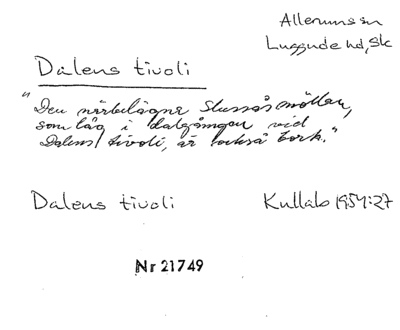 Allerums sn
Luggude hd, Sk
Dalens tivoli
"Den närbelägna Slussåsmöllan,
som låg i dalgången vid
Dalens tivoli, är också bork."
Dalens tivoli Kullab 1954:27
Nr 21749